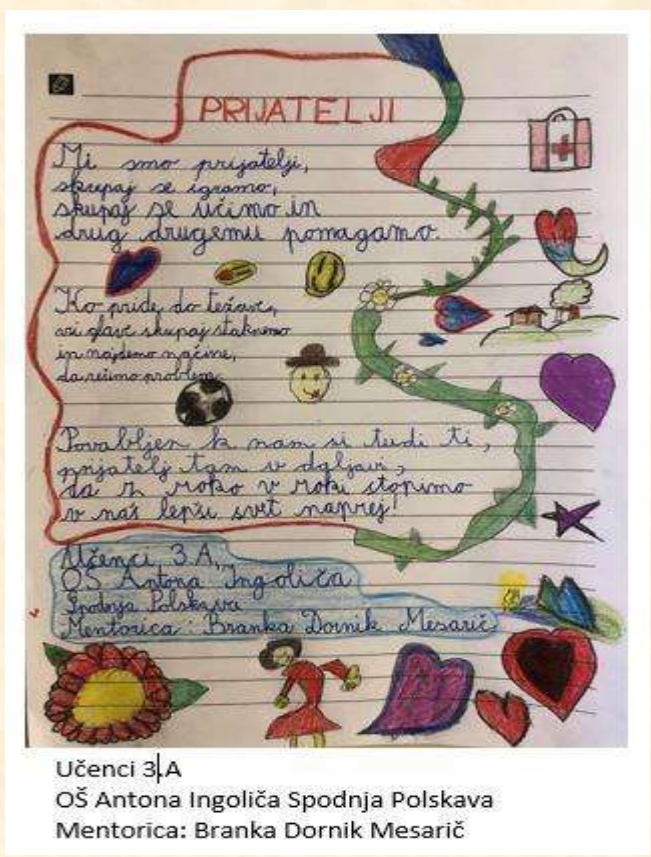 PRIJATELJI
Mi smo prijatelji,
skupaj se igramo,
skupaj se učimo in
drug drugemu pomagamo.
Ko pride do težave,
vsi glave skupaj staknemo
in najdemo načine,
da rešimo probleme.
Povabljen k nam si tudi ti,
prijatelj tam v daljavi,
da z roko v roki stopimo
v naš lepši svet naprej!
Učenci 3.A,
OŠ Antona Ingoliča
Spodnja Polskava
Mentorica: Branka Dornik Mesarič
Učenci 3.A
OŠ Antona Ingoliča Spodnja Polskava
Mentorica: Branka Dornik Mesarič